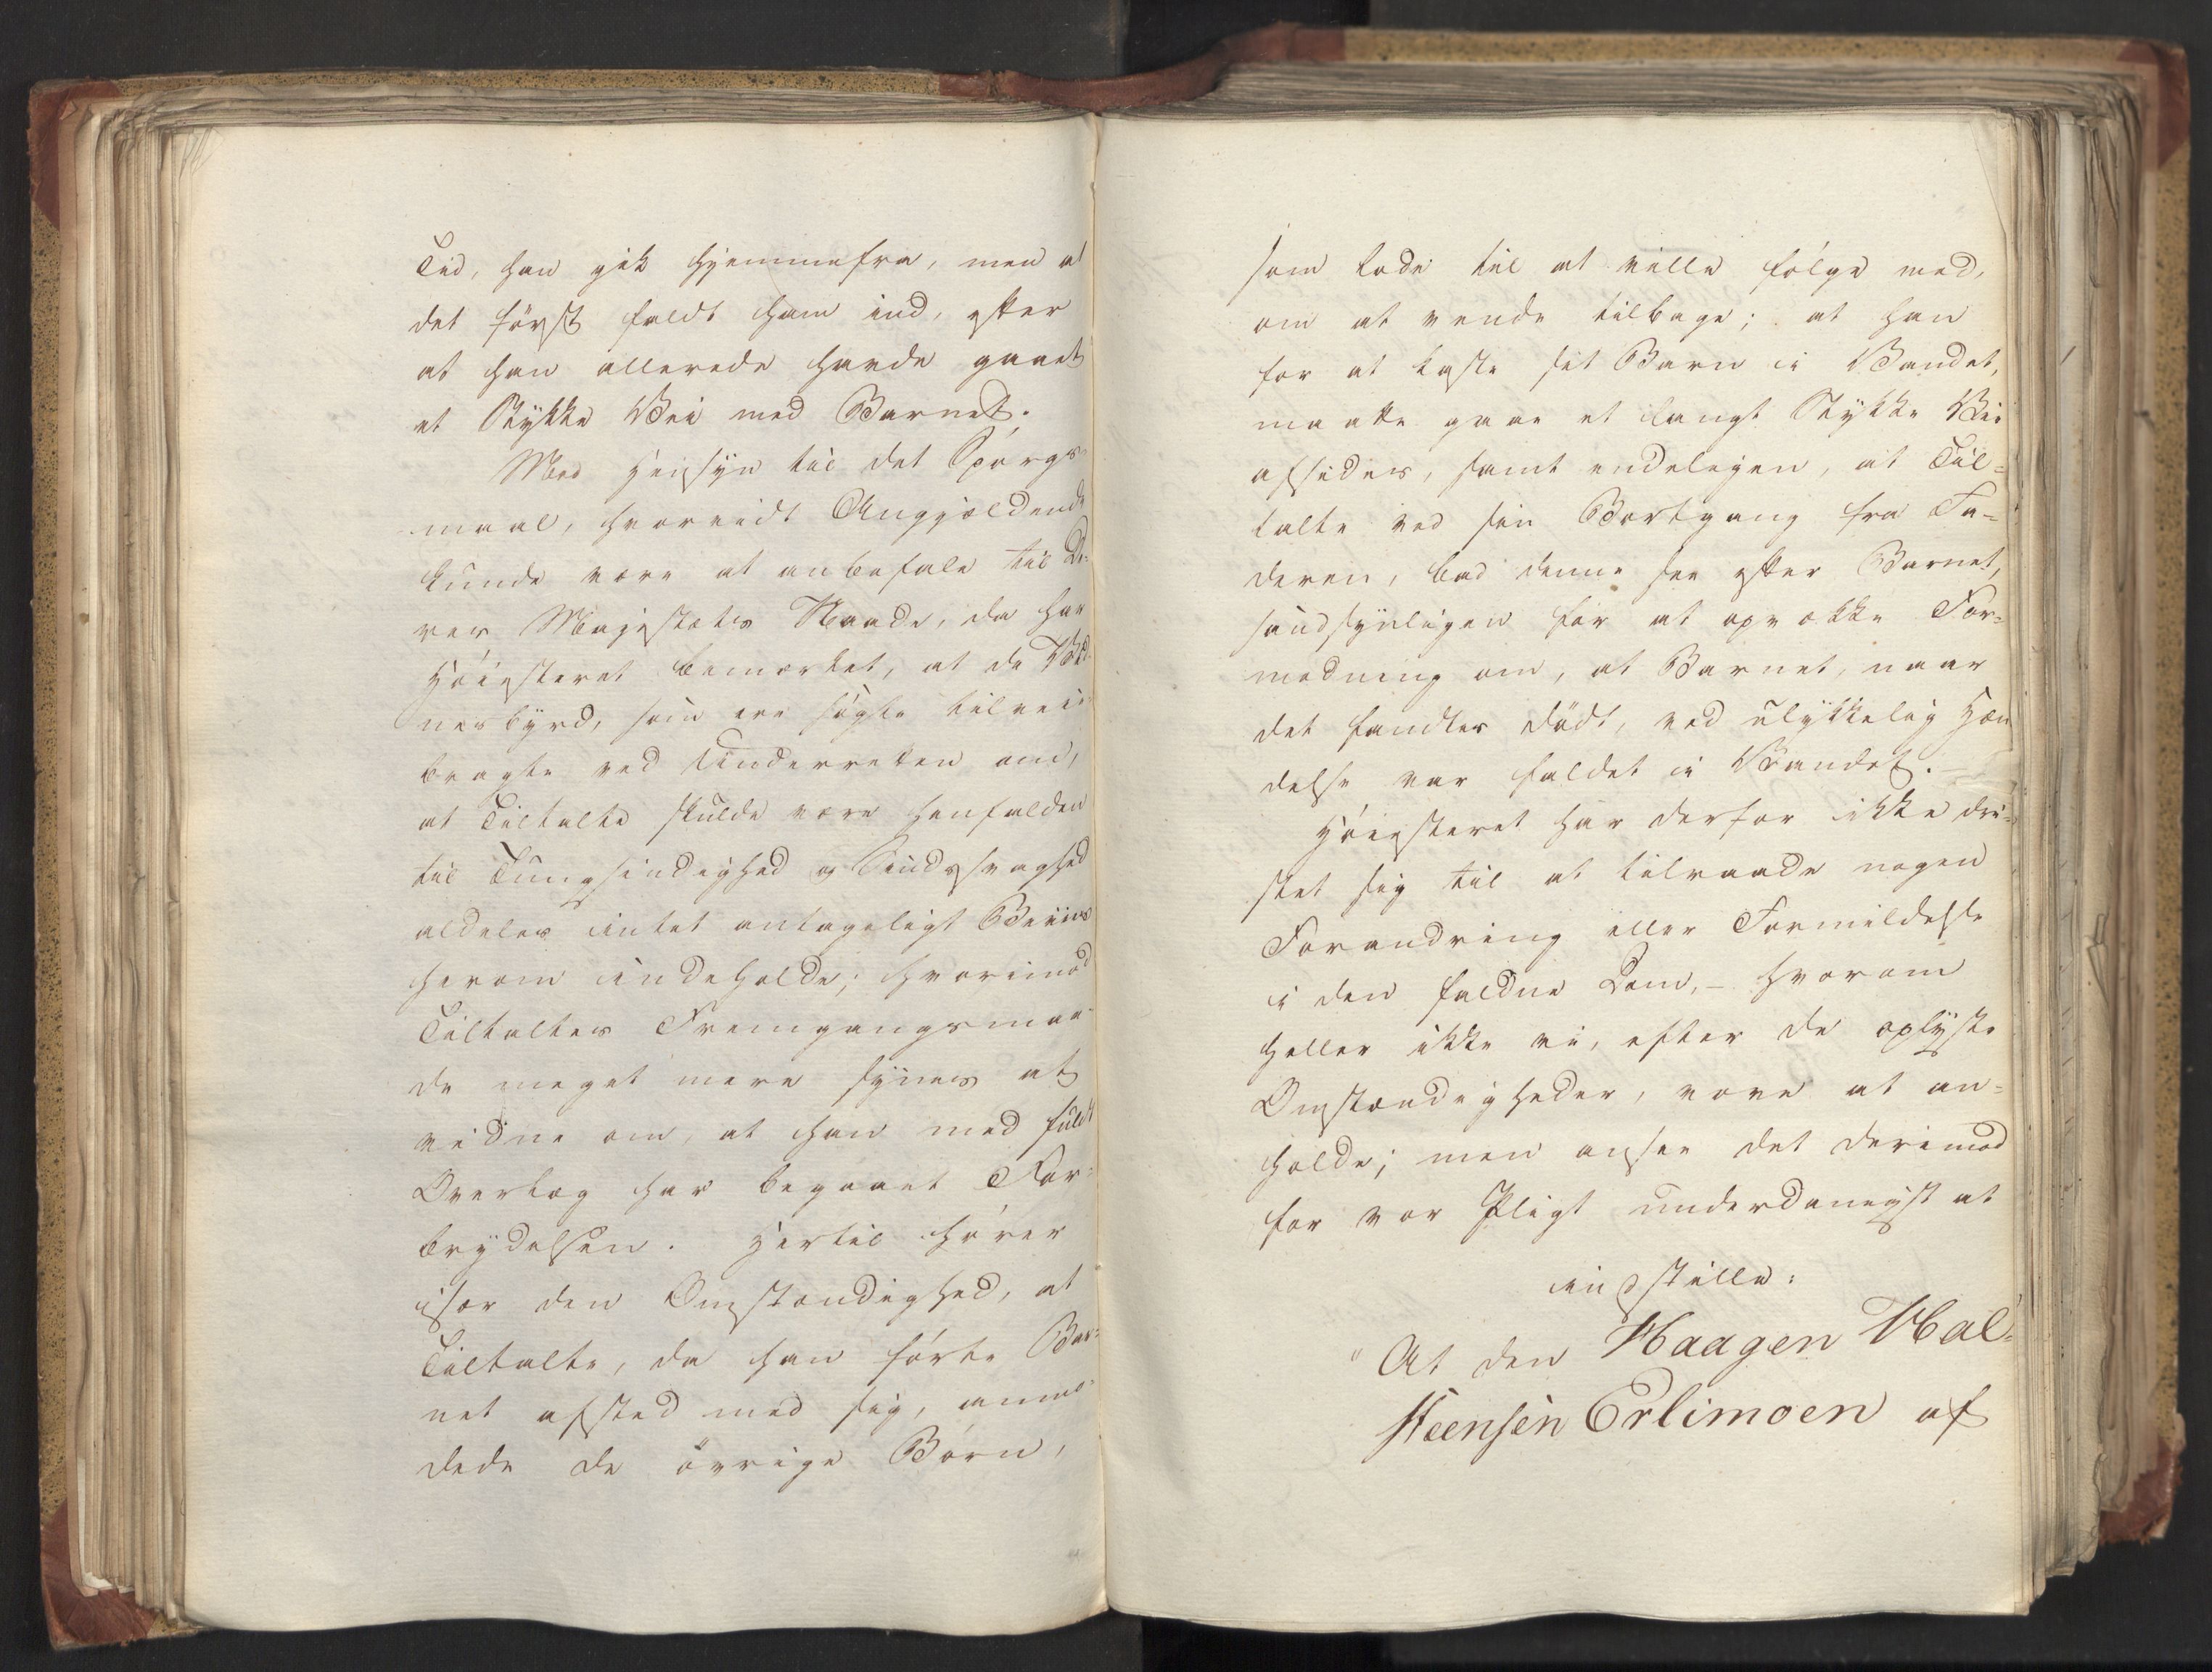 Tid, han gik hjemmefra, men at
det først faldt ham ind, efter
at han allerede havde gaaet
et Stykke Vei med Barnet.
Med Hensyn til det Spørgs-
maal, hvorvidt Angjældende
kunde være at anbefale til De-
res Majestæts Naade, da har
Høiesteret bemærket, at de Vid-
nesbyrd, som ere søgte tilveie-
bragte ved Underretten om,
at Tiltalte skulde være henfalden
til Tungsindighed og Sindssvaghed
aldeles intet antageligt Beviis
herom indeholde; hvorimod
Tiltaltes Fremgangsmaa-
de meget mere synes at
vidne om, at han med fuldt
Overlæg har begaaet For-
brydelsen. Hertil hører
især den Omstændighed, at
Tiltalte, da han førte Bar-
net afsted med sig, anmo-
dede de øvrige Børn,
som lode til at ville følge med,
om at vende tilbage; at han
for at kaste sit Barn i Vandet,
maatte gaae et langt Stykke Vei
afsides, samt endeligen, at Til-
talte ved sin Bortgang fra Fa-
deren, bad denne see efter Barnet,
sandsynligen for at opvække For-
modning om, at Barnet, naar
det fandtes dødt, ved ulykkelig Hæn-
delse var faldet i Vandet. -
Høiesteret har derfor ikke dri-
stet sig til at tilraade nogen
Forandring eller Formildelse
i den faldne Dom, - hvorom
heller ikke vi, efter de oplyste
Omstændigheder, vove at an-
holde; men ansee det derimod
for vor Pligt underdanigst at
indstille:
"At den Haagen Hal-
steensen Erlimoen af